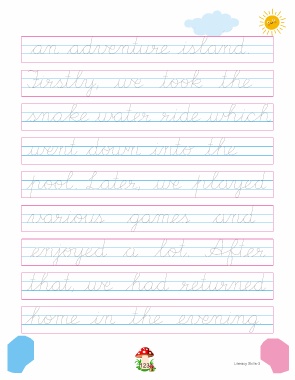 an adventure island.
Firstly, we took the
snake water ride which
went down into the
pool. Later, we played
various games and
enjoyed a lot. After
that, we had returned
home in the evening
123